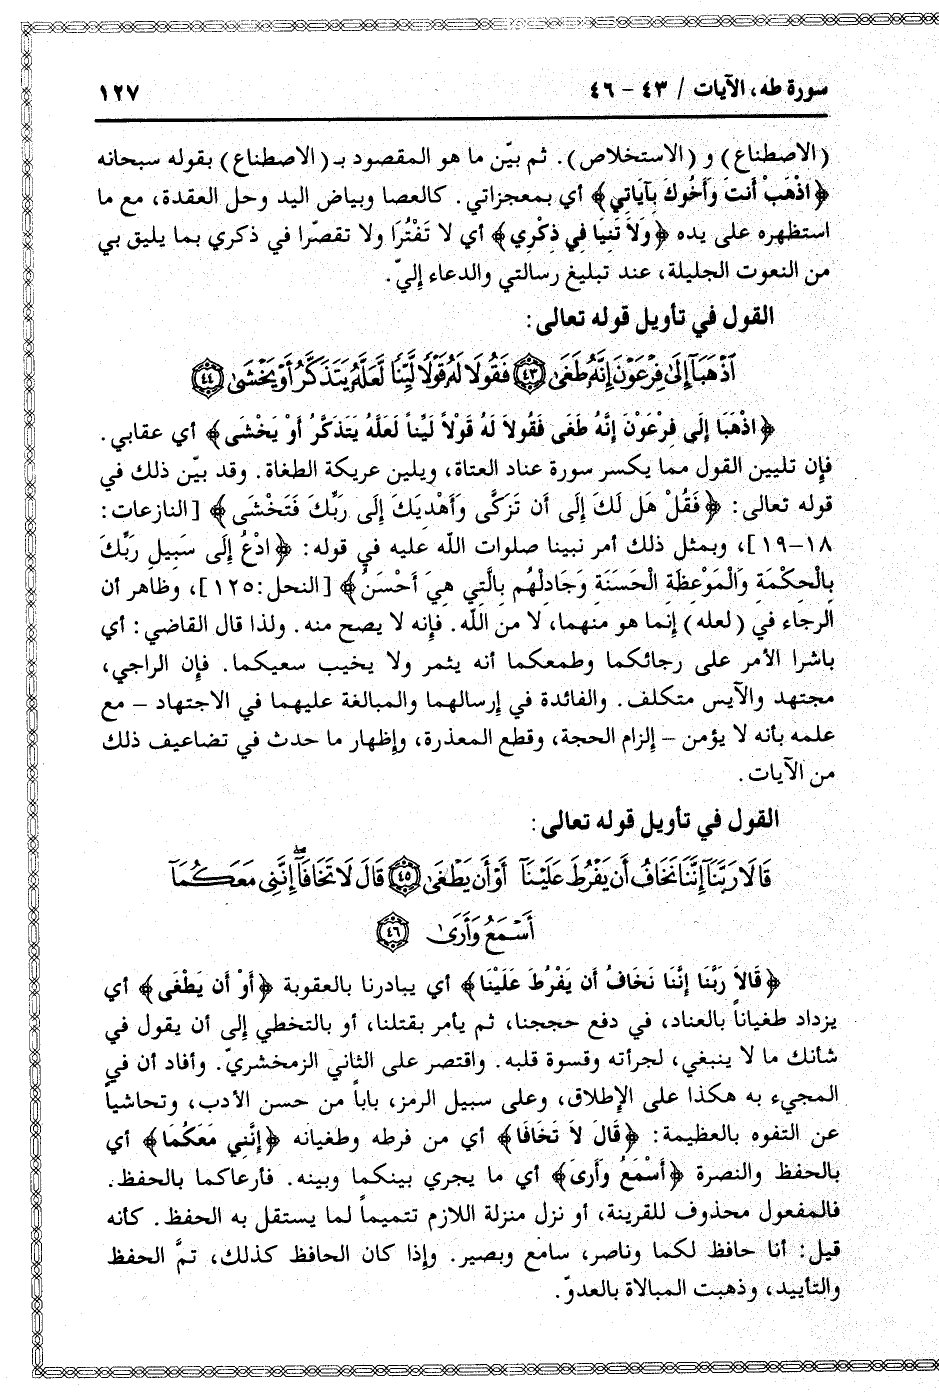 سورة طه، الآيات / ٤٣ - ٤٦ ١٢٧
(الاصطناع) و (الاستخلاص). ثم بيّن ما هو المقصود بـ (الاصطناع) بقوله سبحانه
﴿اذْهَبْ أَنتَ وَأَخُوكَ بِآيَاتِي﴾ أي بمعجزاتي. كالعصا وبياض اليد وحل العقدة، مع ما
استظهره على يده ﴿وَلاَ تَنِيَا فِي ذِكْرِي﴾ أي لا تَفْتُرَا ولا تقصّرا في ذكري بما يليق بي
من النعوت الجليلة، عند تبليغ رسالتي والدعاء إليّ.
القول في تأويل قوله تعالى:
ٱذْهَبَآ إِلَىٰ فِرْعَوْنَ إِنَّهُۥ طَغَىٰ ﴿٤٣﴾ فَقُولَا لَهُۥ قَوْلًا لَّيِّنًا لَّعَلَّهُۥ يَتَذَكَّرُ أَوْ يَخْشَىٰ ﴿٤٤﴾
﴿اذْهَبَا إِلَى فِرْعَوْنَ إِنَّهُ طَغَى فَقُولاَ لَهُ قَوْلاً لَيِّناً لَعَلَّهُ يَتَذَكَّرُ أَوْ يَخْشَى﴾ أي عقابي.
فإن تليين القول مما يكسر سورة عناد العتاة، ويلين عريكة الطغاة. وقد بيّن ذلك في
قوله تعالى: ﴿فَقُلْ هَل لَكَ إِلَى أَن تَزَكَّى وَأَهْدِيَكَ إِلَى رَبِّكَ فَتَخْشَى﴾ [النازعات:
١٨-١٩]، وبمثل ذلك أمر نبينا صلوات اللّه عليه في قوله: ﴿ادْعُ إِلَى سَبِيلِ رَبِّكَ
بِالْحِكْمَةِ وَالْمَوْعِظَةِ الْحَسَنَةِ وَجَادِلْهُم بِالَّتِي هِيَ أَحْسَنُ﴾ [النحل:١٢٥]، وظاهر أن
الرجاء في (لعله) إنما هو منهما، لا من اللّه. فإنه لا يصح منه. ولذا قال القاضي: أي
باشرا الأمر على رجائكما وطمعكما أنه يثمر ولا يخيب سعيكما. فإن الراجي،
مجتهد والآيس متكلف. والفائدة في إرسالهما والمبالغة عليهما في الاجتهاد – مع
علمه بأنه لا يؤمن – إلزام الحجة، وقطع المعذرة، وإظهار ما حدث في تضاعيف ذلك
من الآيات.
القول في تأويل قوله تعالى:
قَالَا رَبَّنَآ إِنَّنَا نَخَافُ أَن يَفْرُطَ عَلَيْنَآ أَوْ أَن يَطْغَىٰ ﴿٤٥﴾ قَالَ لَا تَخَافَآ ۖ إِنَّنِى مَعَكُمَآ
أَسْمَعُ وَأَرَىٰ ﴿٤٦﴾
﴿قَالاَ رَبَّنَا إِنَّنَا نَخَافُ أَن يَفْرُطَ عَلَيْنَا﴾ أي يبادرنا بالعقوبة ﴿أَوْ أَن يَطْغَى﴾ أي
يزداد طغياناً بالعناد، في دفع حججنا، ثم يأمر بقتلنا، أو بالتخطي إلى أن يقول في
شأنك ما لا ينبغي، لجرأته وقسوة قلبه. واقتصر على الثاني الزمخشريّ. وأفاد أن في
المجيء به هكذا على الإطلاق، وعلى سبيل الرمز، باباً من حسن الأدب، وتحاشياً
عن التفوه بالعظيمة: ﴿قَالَ لاَ تَخَافَا﴾ أي من فرطه وطغيانه ﴿إِنَّنِي مَعَكُمَا﴾ أي
بالحفظ والنصرة ﴿أَسْمَعُ وَأَرَى﴾ أي ما يجري بينكما وبينه. فأرعاكما بالحفظ.
فالمفعول محذوف للقرينة، أو نزل منزلة اللازم تتميماً لما يستقل به الحفظ. كأنه
قيل: أنا حافظ لكما وناصر، سامع وبصير. وإذا كان الحافظ كذلك، تمَّ الحفظ
والتأييد، وذهبت المبالاة بالعدوّ.